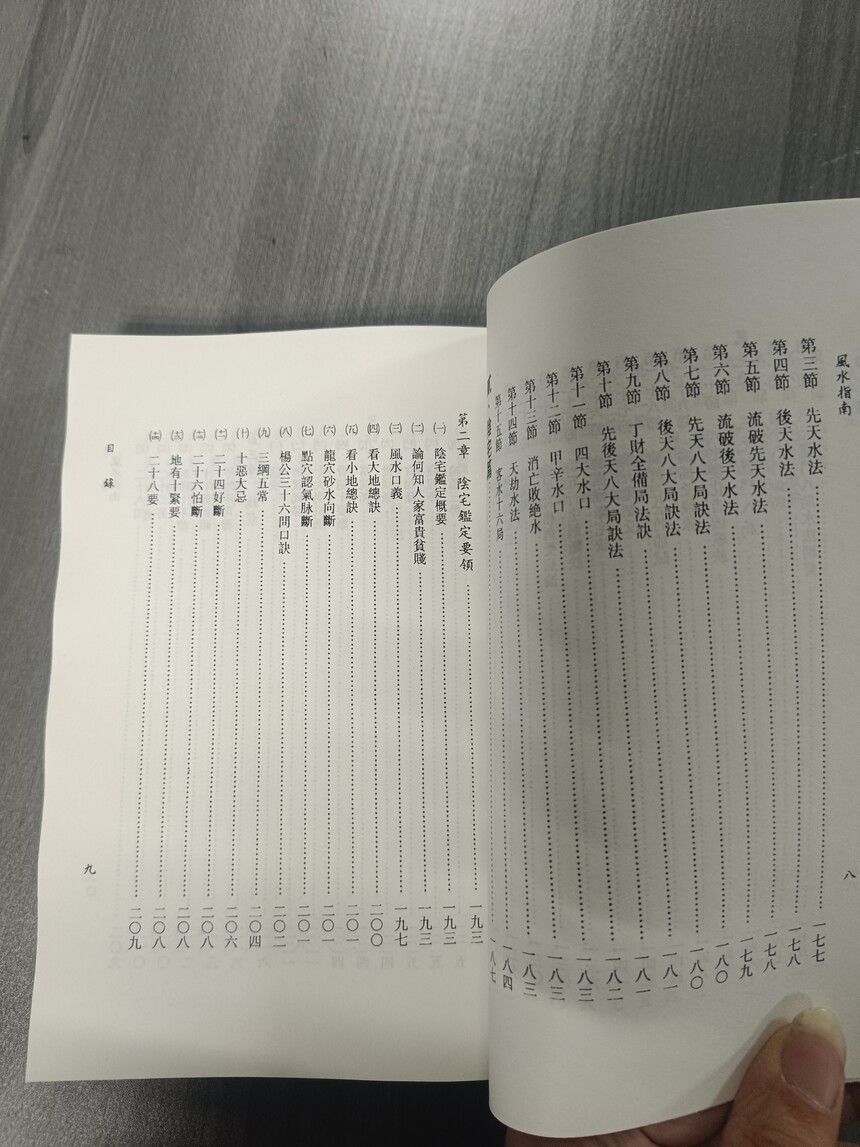 風水指南
第三節 先天水法……一七七
第四節 後天水法……一七八
第五節 流破先天水法……一七八
第六節 流破後天水法……一七九
第七節 先天八大局訣法……一八〇
第八節 後天八大局訣法……一八〇
第九節 丁財全備局法訣……一八一
第十節 先後天八大局訣法……一八一
第十一節 四大水口……一八二
第十二節 甲辛水口……一八三
第十三節 消亡敗絶水……一八三
第十四節 天劫水法……一八三
第十五節 客水十六局……一八四
一八七
八
第二章 陰宅鑑定要領……一九三
㈠ 陰宅鑑定概要……一九三
㈡ 論何知人家富貴貧賤……一九三
㈢ 風水口義……一九七
㈣ 看大地總訣……二〇〇
㈤ 看小地總訣……二〇一
㈥ 龍穴砂水向斷……二〇一
㈦ 點穴認氣脉斷……二〇一
㈧ 楊公三十六問口訣……二〇二
㈨ 三綱五常……二〇四
㈩ 十惡大忌……二〇六
(十一) 二十四好斷……二〇八
(十二) 二十六怕斷……二〇八
(十三) 地有十緊要……二〇八
(十四) 二十八要……二〇九
目錄
九